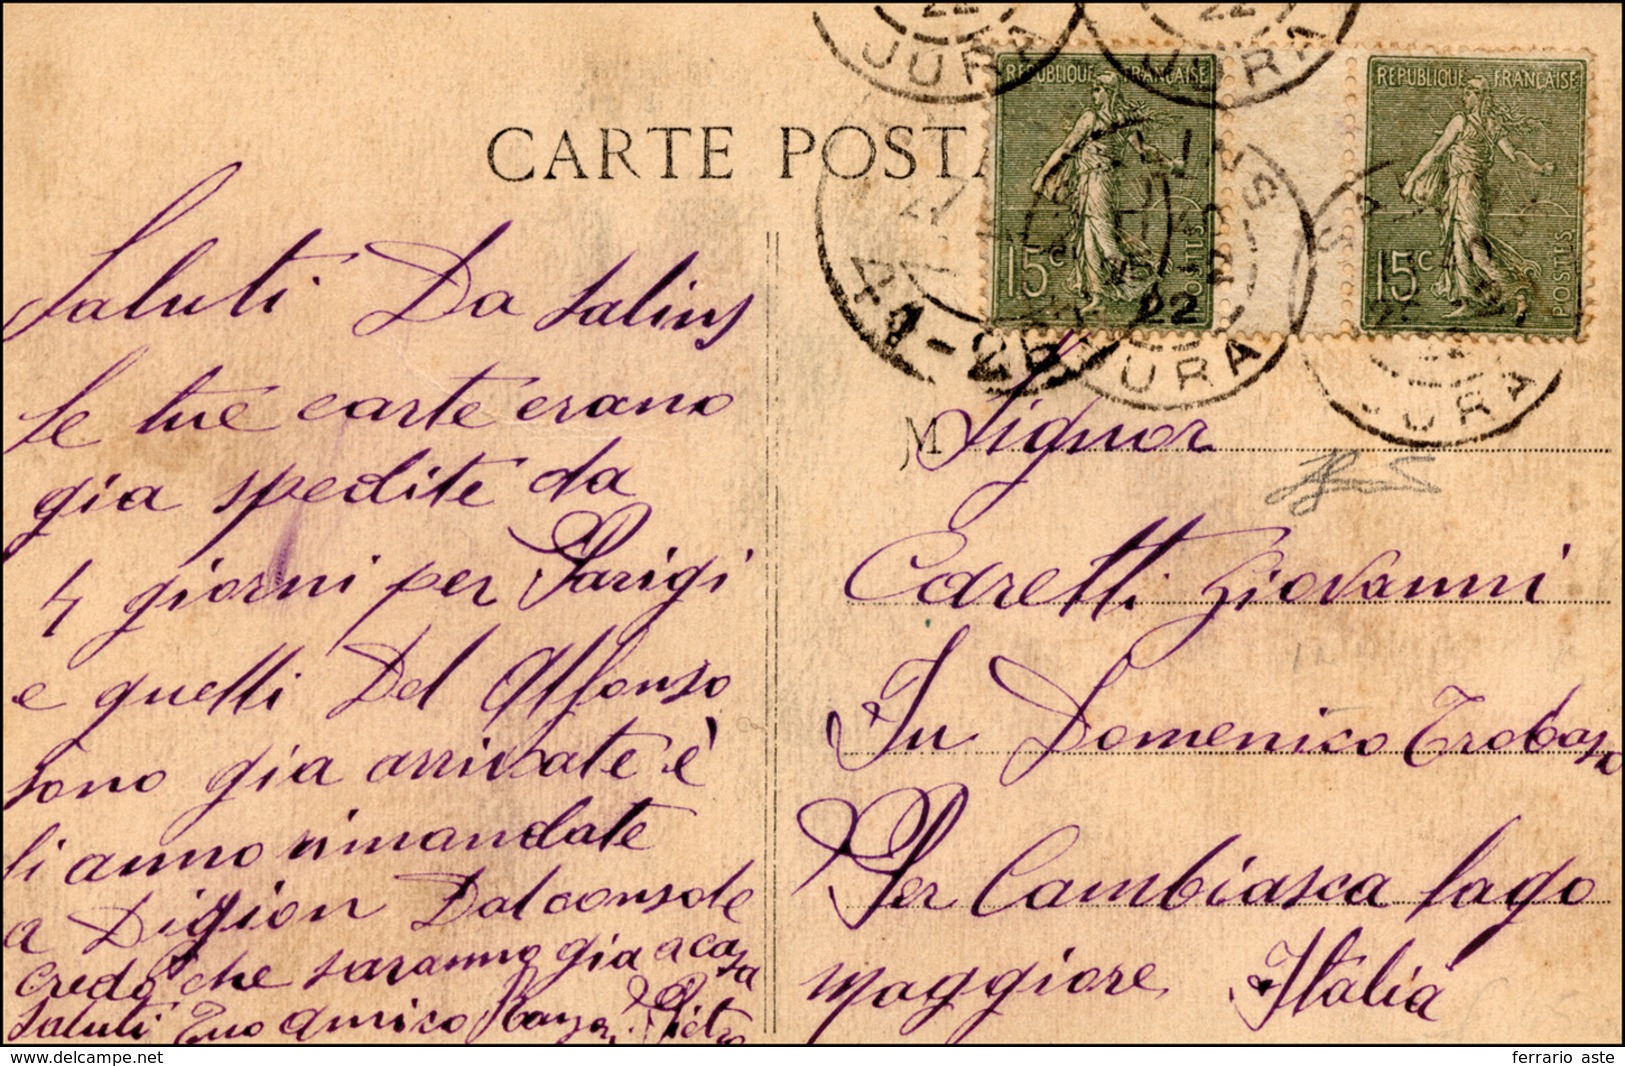 CARTE POSTA
REPUBLIQUE FRANÇAISE
15c
POSTES
REPUBLIQUE FRANÇAISE
15c
POSTES
22
JURA
22
JURA
SALINS
22
JURA
JURA
Saluti Da Salins
le tue carte erano
gia spedite da
4 giorni per Parigi
e quelli Del Alfonso
sono gia arrivate è
li anno rimandate
a Digion Dal console
Credo che saranno gia a casa
Saluti Tuo Amico Pietro
M Signor
Caretti Giovanni
Fu Domenico Trobaso
Per Cambiasca lago
maggiore Italia
delcampe.net
ferrario aste